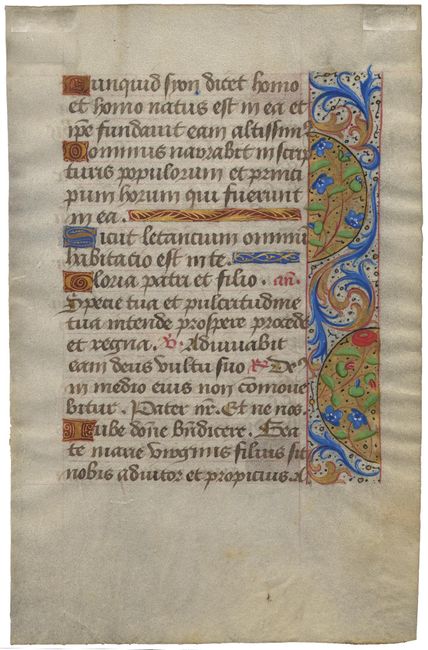 Nunquid syon dicet homo
et homo natus est in ea et
ipe fundavit eam altissimꝰ
Dominus narrabit in scrip
turis populorum et princi
pum horum qui fuerunt
in ea.
Sicut letancium omniū
habitatio est in te.
Gloria patri et filio. an̄.
Specie tua et pulcritudine
tua intende prospere procede
et regna. v. Adiuvabit
eam deus vultu suo R. De9
in medio eius non comove
bitur. Pater nr̄. Et ne nos.
Iube dōne bn̄dicere. Bea
te marie virginis filius sit
nobis adiutor et propicius. A